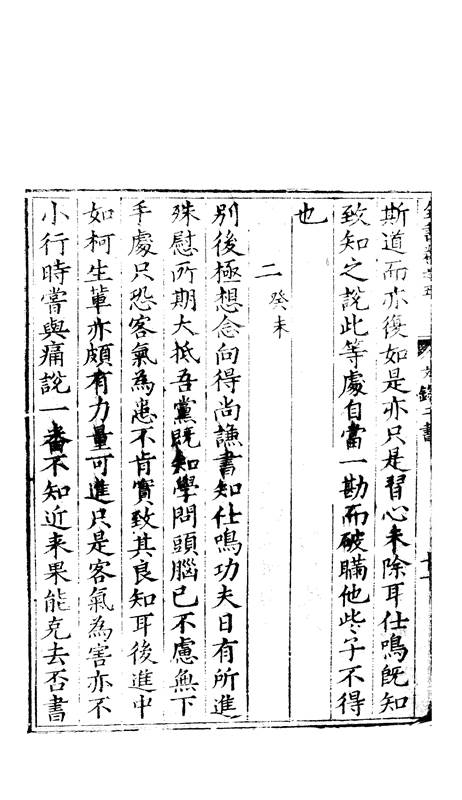 斯道而亦復如是亦只是習心未除耳仕鳴旣知
致知之說此等處自當一勘而破瞞他些子不得
也
二癸未
別後極想念向得尚謙書知仕鳴功夫日有所進
殊慰所期大抵吾黨旣知學問頭腦已不慮無下
手處只恐客氣為患不肯實致其良知耳後進中
如柯生輩亦頗有力量可進只是客氣為害亦不
小行時嘗與痛說一番不知近来果能克去否書